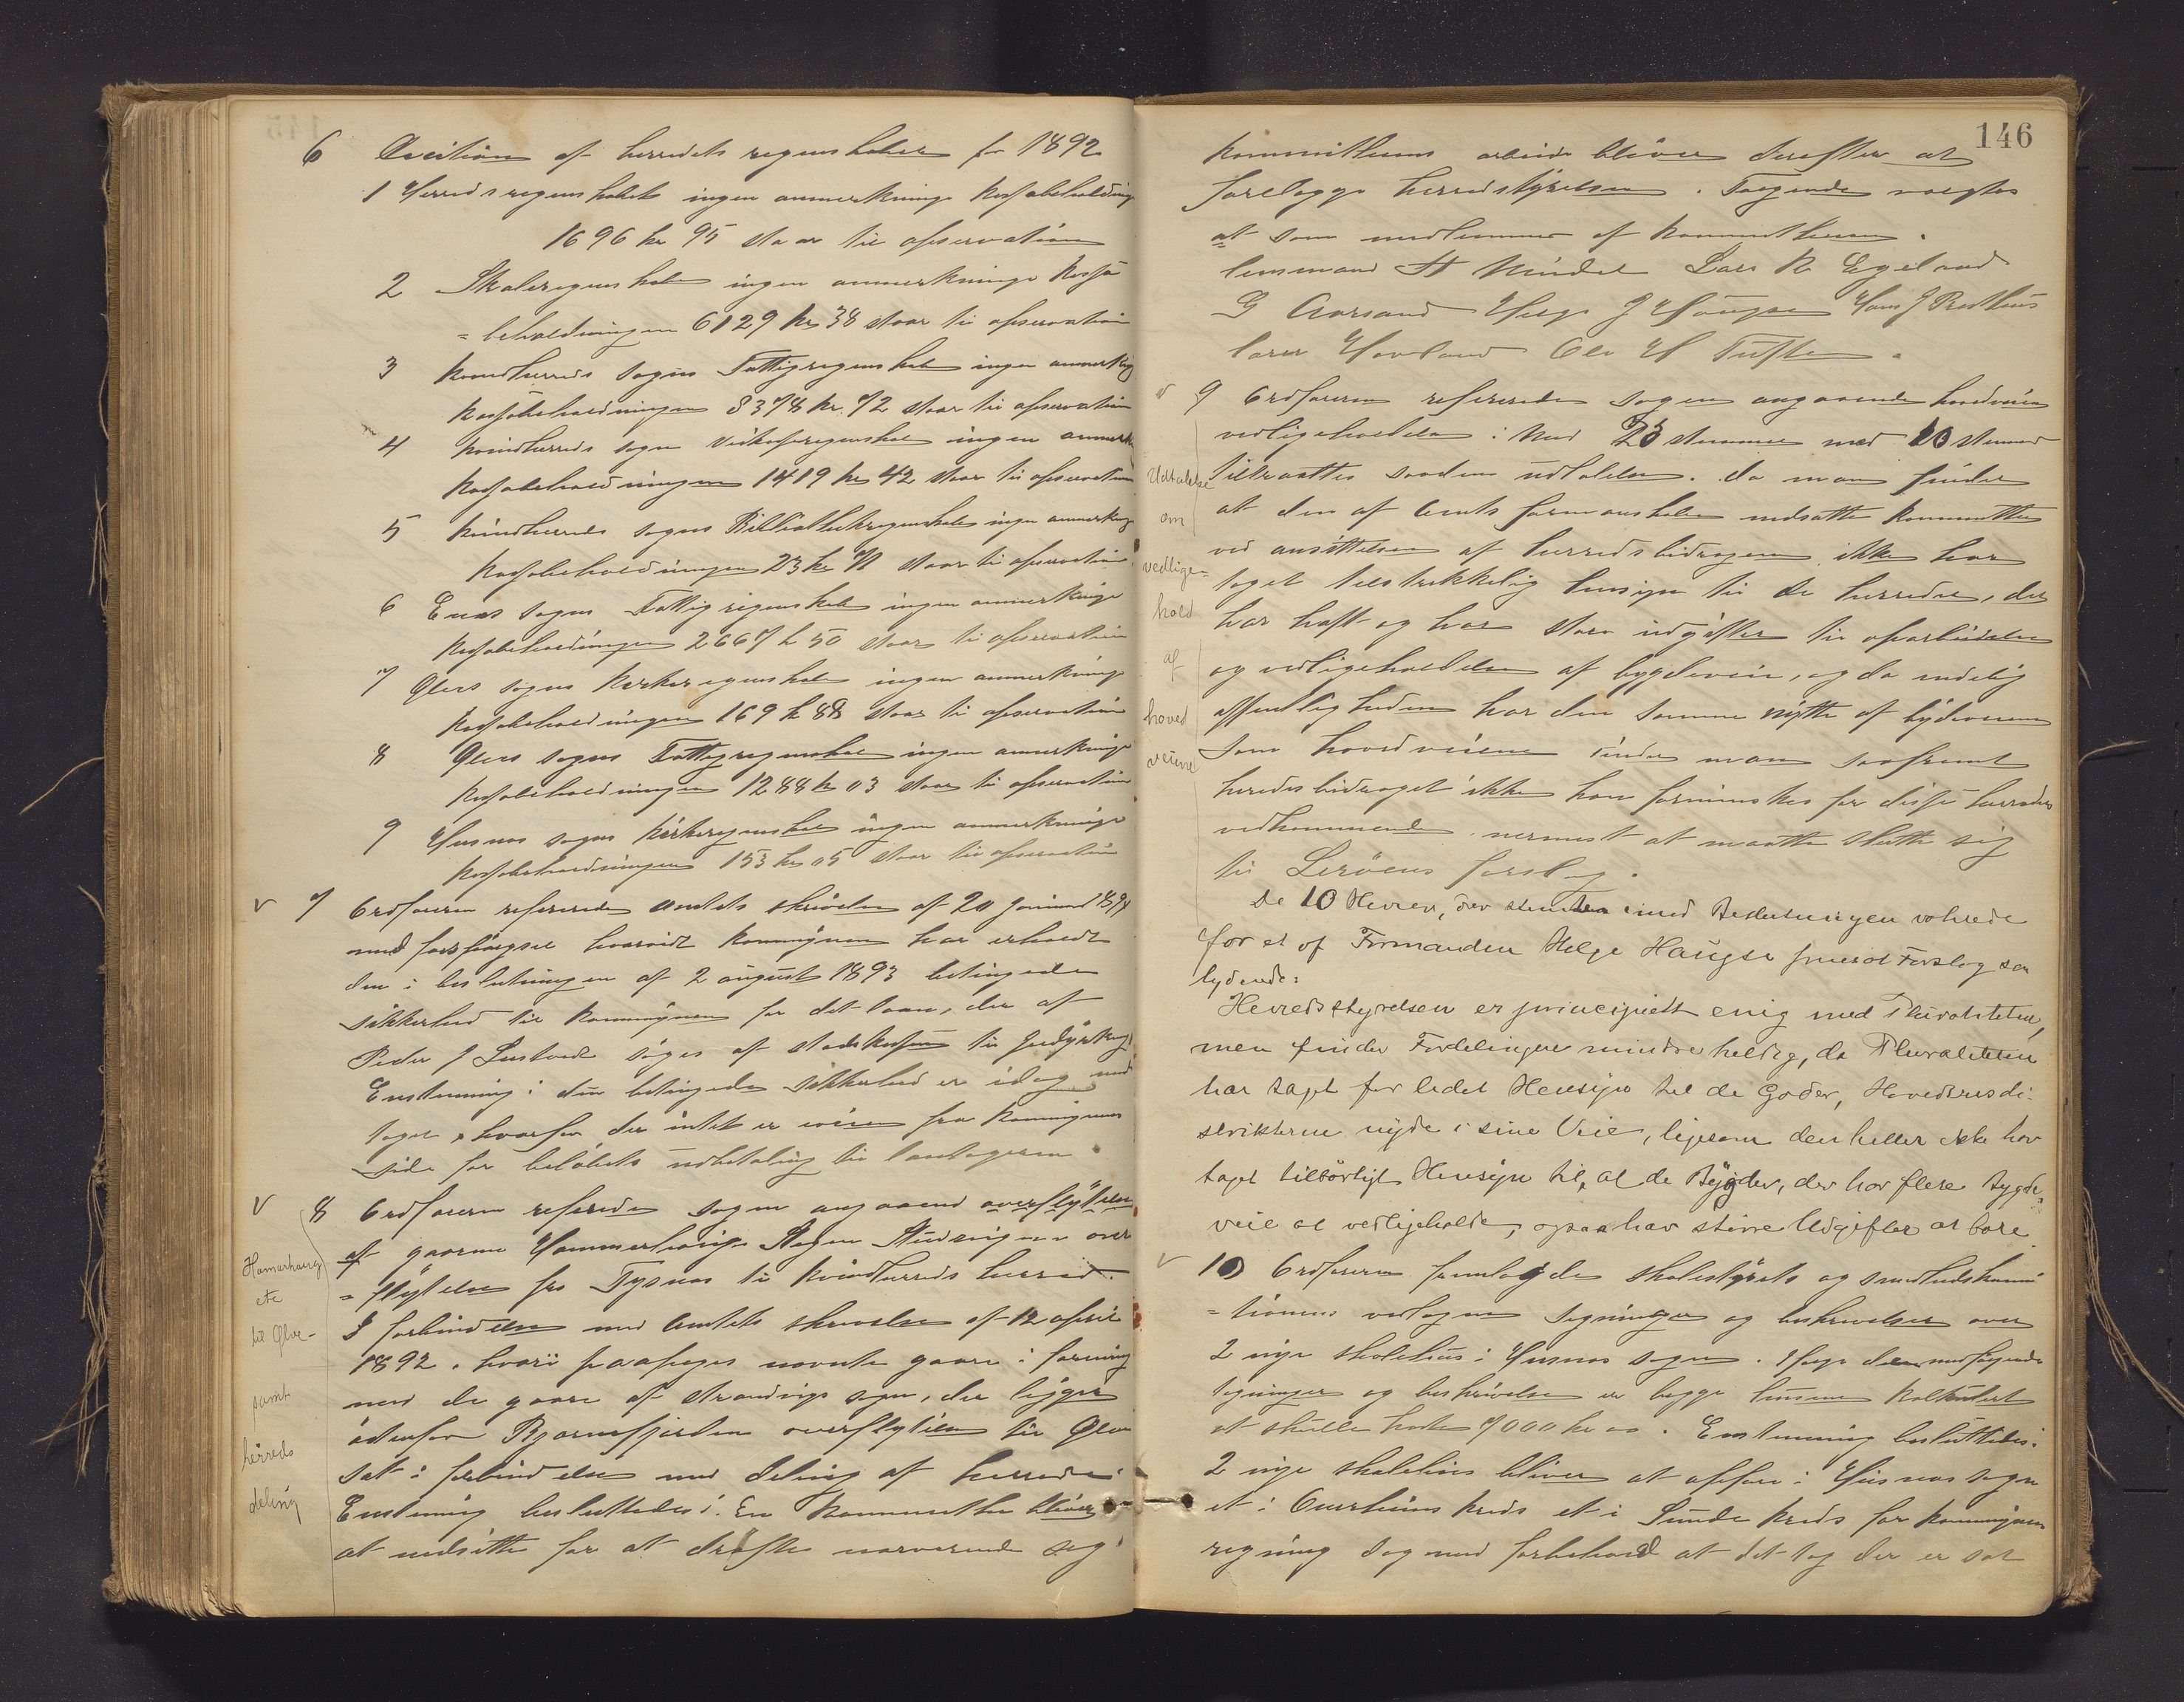 6 Decition af herredets regenskaber for 1892
1 Herredsregenskabet ingen anmerkninge Kassabeholdning
1696 kr 95 staar til observation
2 Skoleregenskabet ingen anmerkninge Kassa
=beholdningen 6129 kr 38 staar til observation
3 Kvindherreds sogns Fattigregenskab ingen anmerkning
Kassabeholdningen 8378 kr. 72 staar til observation
4 Kvindherreds sogns regenskab ingen anmerk
Kassabeholdningen 1419 kr 42 staar til observation
5 Kvindherreds sogns Bibliothekregenskab ingen anmerkning
Kassabeholdningen 23 kr 71 staar til observation
6 Enæs sogns Fattigregenskab ingen anmerkninge
Kassabeholdningen 2667 kr 50 staar til observation
7 Ølves sogns Kirkeregenskab ingen anmerkninge
Kassabeholdningen 169 kr 88 staar til observation
8 Ølves sogns Fattigregenskab ingen anmerkninge
Kassabeholdningen 1288 kr 03 staar til observation
9 Husnæs sogns Kirkeregenskab ingen anmerkninge
Kassabeholdningen 153 kr 05 staar til observation
v 7 Ordføreren refererede amtets skrivelse af 20 januar 1894
med forespørgsel hvorvidt kommunen har erholdt
den i beslutningen af 2 august 1893 betingede
sikkerhed til kommunen for det laan, der af
Peder J søges af statskassen til jorddyrkning
Enstemmig: den betingede sikkerhed er idag med
taget, hvorfor der intet er iveien fra kommunens
side for beløbets udbetaling til laantageren.
v 8 Ordføreren refererede sagen angaaende overflyttelse
af gaarene Hammerhaug over
=flyttelse fra Tysnæs til Kvindherreds herred.
Hamarhaug
etc
til Ølve-
samt
herreds
deling
I forbindelse med Amtets skrivelse af 12 april
1892. hvori paapeges nævnte gaare i forening
med de gaare af Strandvigs sogn, der ligger
østenfor Bjørnefjorden overflyttes til Ølve
sat i forbindelse med deling af herredet
Enstemmig besluttedes: En kommitthe bliver
at nedsætte for at drøfte nærværende sag
146
Kommittheens arbeide bliver derefter at
forelægge herredstyrelsen. Følgende valgtes
at som medlemmer af kommittheen.
lensmand Lars R Egeland
G Aarsand Helge J Haugse Hans J Rødthus
lærer Hovland Ole H Tufte.
v 9 Ordføreren refererede sagen angaaende hovedveiens
vedligeholdelse: Med stemmer mod 10 stemmer
Udtalelse
om
vedlige-
hold
af
hoved
veiene
tiltraattes saadan udtalelse. da man finder
at den af Amts formandskabet nedsatte kommitthe
ved ansættelsen af herredsbidragene ikke har
taget tilstrækkelig hensyn til de herreder, der
har haft og har store udgifter til oparbeidelse
og vedligeholdelse af bygdeveie, og da endelig
offentligheden har den samme nytte af bydeveiene
som hovedveiene finder man saafremt
heredsbidraget ikke kan forminskes for disse herreders
vedkommende. nermest at maatte slutte sig
til Lerøens forslag.
De 10 Herrer, der stemte imod Beslutningen voterede
for et af Formanden Helge Haugse fremsat Forslag saa
lydende:
Herredsstyrelsen er principielt enig med Pluraliteten,
men finder Fordelingen mindre heldig, da Pluraliteten
har taget for lidet Hensyn til de Goder, Hoved
strikterne nyde i sine Veie, ligesom den heller ikke har
taget tilbørligt Hensyn til, at de Bygder, der har flere Bygde=
veie at vedligeholde, ogsaa har større Udgifter at bære.
v 10 Ordføreren fremlagde skolestyrets og sundhedskommi
=tionens vedtagne tegninger og beskrivelser over
2 nye skolehus i Husnæs sogn. Ifølge den medfølgende
tegninger og beskrivelse er begge husene kalkuleret
at skulle koste 7000 kr 00. Enstemmig besluttedes:
2 nye skolehus bliver at opføre i Husnæs sogn
et i kreds et i Sunde kreds for kommunens
regning dog med forbehold at det tag der er sat